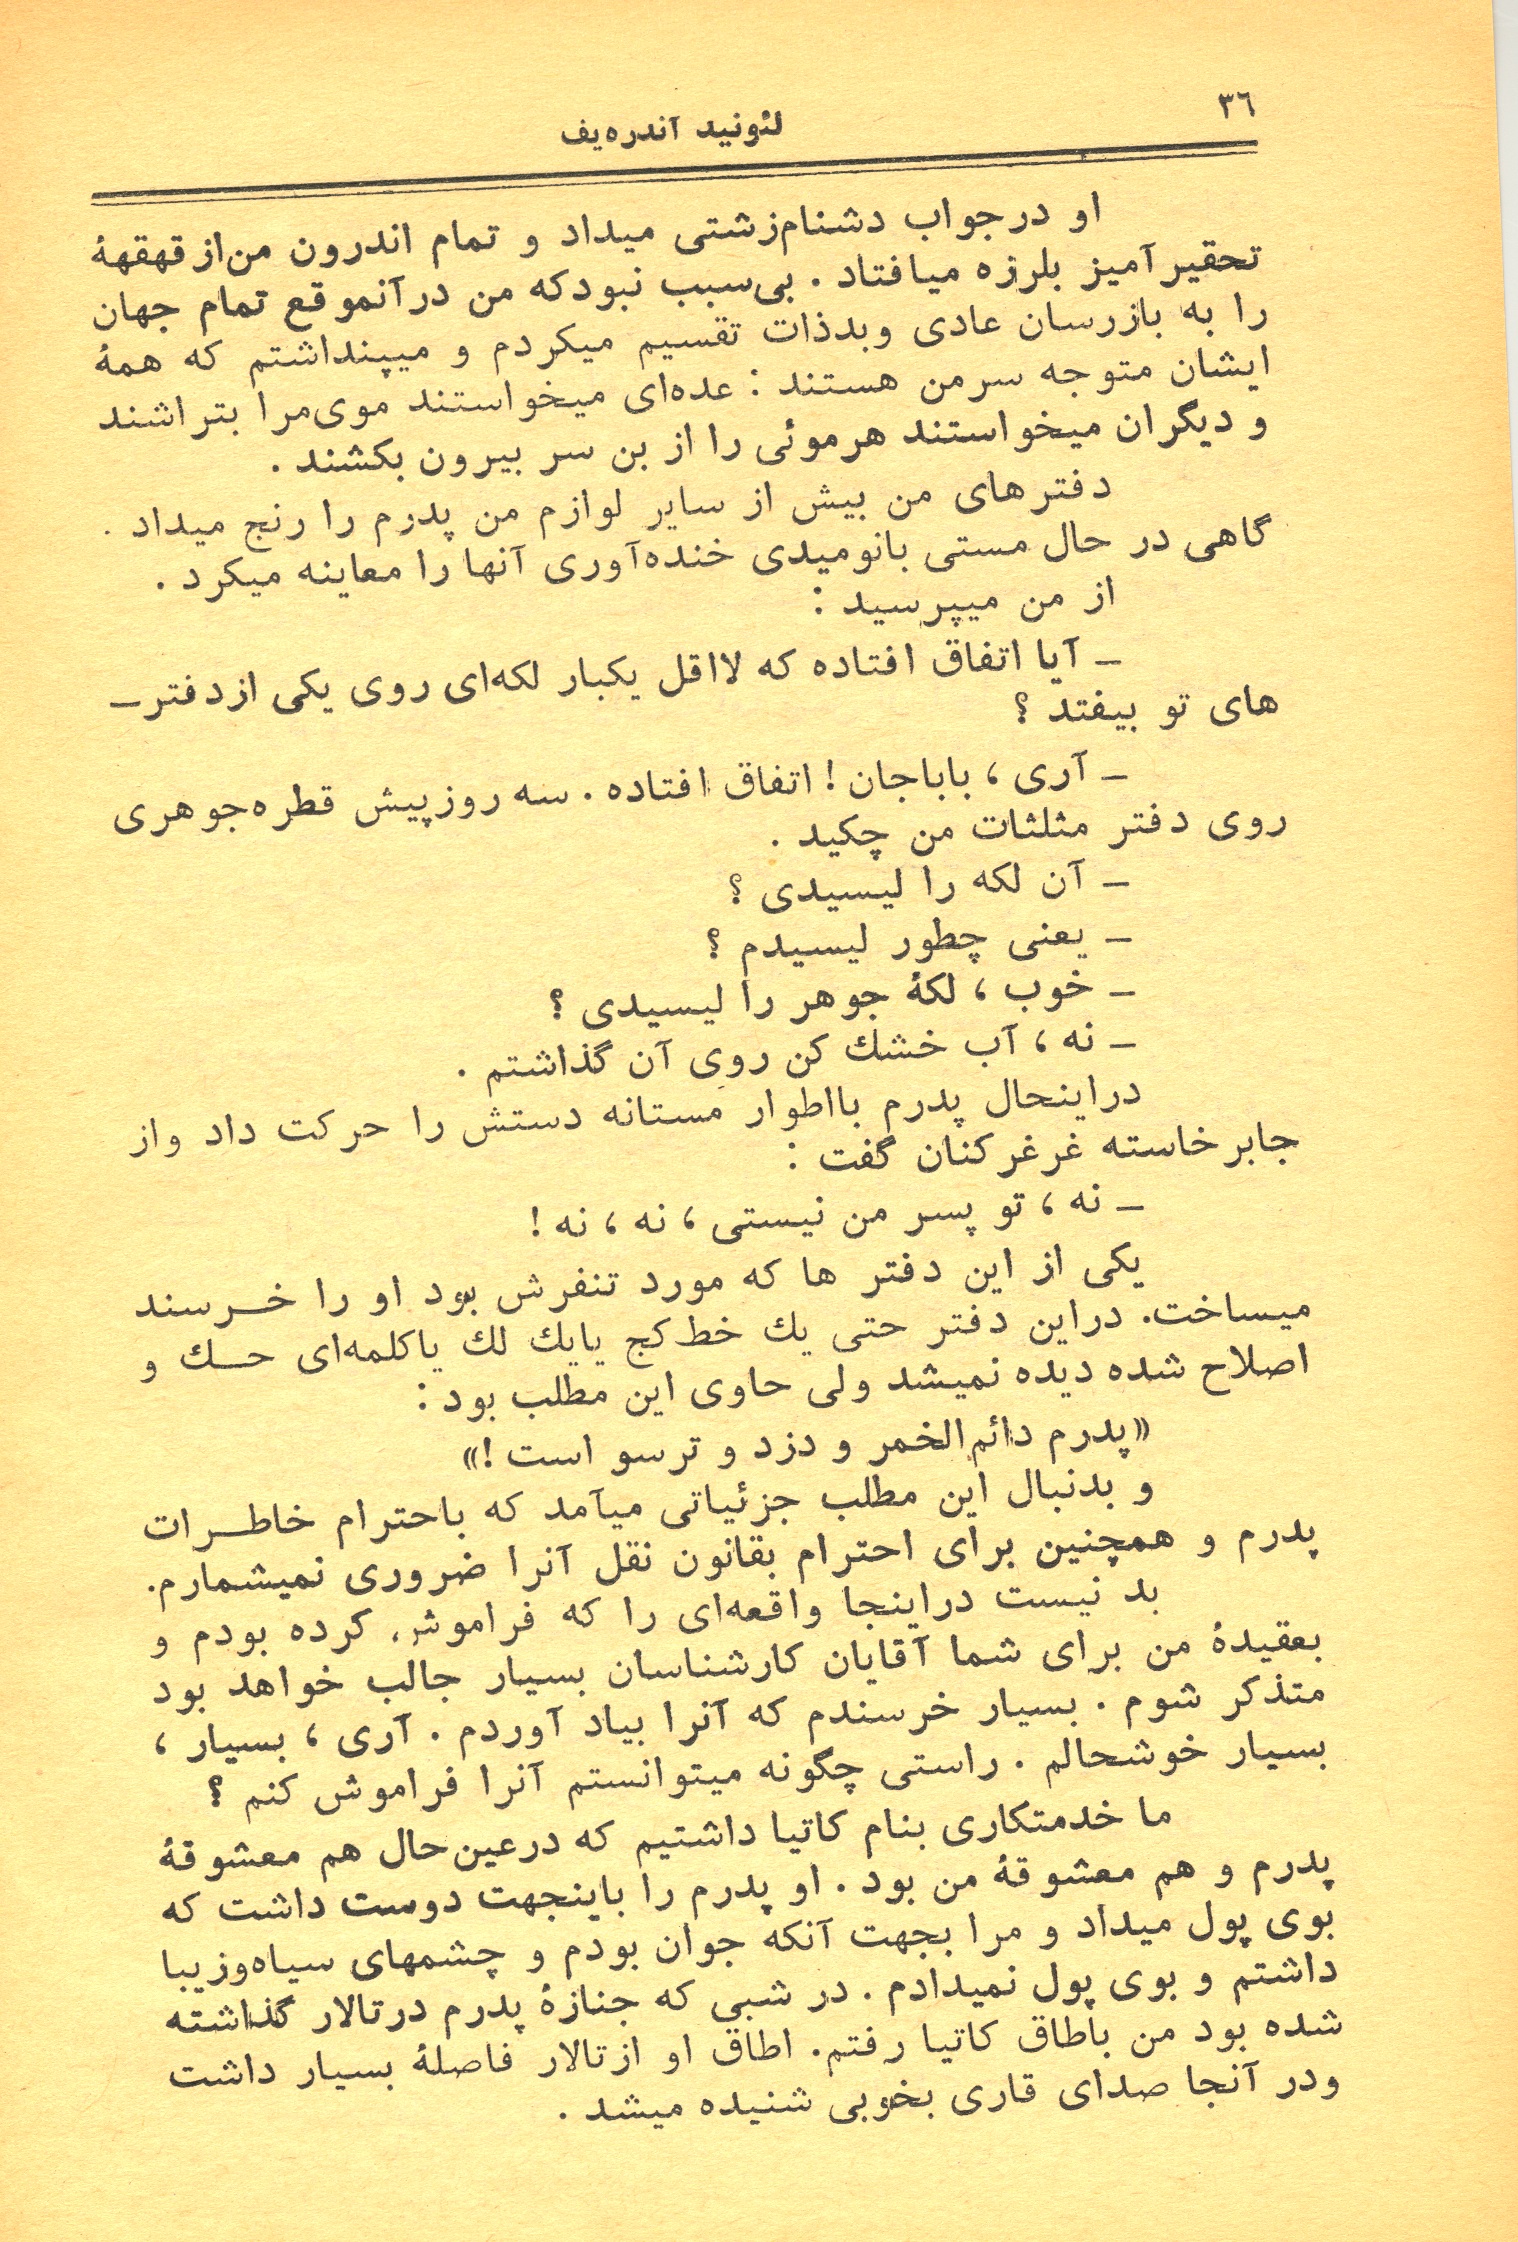 ۳٦
لئونید آندره‌یف
او در جواب دشنام زشتی میداد و تمام اندرون من از قهقههٔ
تحقیر آمیز بلرزه میافتاد . بی‌سبب نبود که من در آنموقع تمام جهان
را به بازرسان عادی و بدذات تقسیم میکردم و میپنداشتم که همهٔ
ایشان متوجه سر من هستند : عده‌ای میخواستند موی مرا بتراشند
و دیگران میخواستند هر موئی را از بن سر بیرون بکشند .
دفترهای من بیش از سایر لوازم من پدرم را رنج میداد .
گاهی در حال مستی بانومیدی خنده‌آوری آنها را معاینه میکرد .
از من میپرسید :
ـ آیا اتفاق افتاده که لااقل یکبار لکه‌ای روی یکی از دفتر ـ
های تو بیفتد ؟
ـ آری ، باباجان ! اتفاق افتاده . سه روز پیش قطره جوهری
روی دفتر مثلثات من چکید .
ـ آن لکه را لیسیدی ؟
ـ یعنی چطور لیسیدم ؟
ـ خوب ، لکهٔ جوهر را لیسیدی ؟
ـ نه ، آب خشك کن روی آن گذاشتم .
در اینحال پدرم با اطوار مستانه دستش را حرکت داد و از
جا برخاسته غرغر کنان گفت :
ـ نه ، تو پسر من نیستی ، نه ، نه !
یکی از این دفتر ها که مورد تنفرش بود او را خـرسند
میساخت. در این دفتر حتی یك خط کج یا یك لك یا کلمه‌ای حـك و
اصلاح شده دیده نمیشد ولی حاوی این مطلب بود :
«پدرم دائم‌الخمر و دزد و ترسو است !»
و بدنبال این مطلب جزئیاتی میآمد که با احترام خاطـرات
پدرم و همچنین برای احترام بقانون نقل آنرا ضروری نمیشمارم.
بد نیست در اینجا واقعه‌ای را که فراموش کرده بودم و
بعقیدهٔ من برای شما آقایان کارشناسان بسیار جالب خواهد بود
متذکر شوم . بسیار خرسندم که آنرا بیاد آوردم . آری ، بسیار ،
بسیار خوشحالم . راستی چگونه میتوانستم آنرا فراموش کنم ؟
ما خدمتکاری بنام کاتیا داشتیم که در عین حال هم معشوقهٔ
پدرم و هم معشوقهٔ من بود . او پدرم را باینجهت دوست داشت که
بوی پول میداد و مرا بجهت آنکه جوان بودم و چشمهای سیاه و زیبا
داشتم و بوی پول نمیدادم . در شبی که جنازهٔ پدرم در تالار گذاشته
شده بود من باطاق کاتیا رفتم. اطاق او از تالار فاصلهٔ بسیار داشت
و در آنجا صدای قاری بخوبی شنیده میشد .